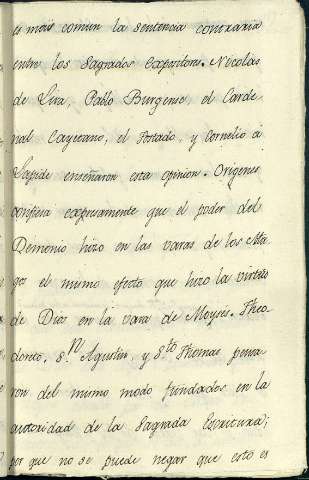 es mas comun la sentencia contraria
entre los Sagrados Expositores. Nicolas
de Lira, Pablo Burgense, el Carde-
nal Cayetano, el Tostado, y Cornelio à
Lapide enseñaron esta opinion. Origenes
confiesa expresamente que el poder del
Demonio hizo en las varas de los Ma-
gos el mismo efecto que hizo la virtud
de Dios en la vara de Moyses. Theo-
doreto, S.n Agustin, y S.to Thomas pensa-
ron del mismo modo fundados en la
autoridad de la Sagrada Escritura;
por que no se puede negar que esto es